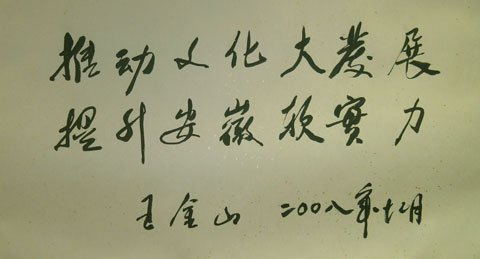 推动文化大发展
提升安徽软实力
王金山 二〇〇八年十二月